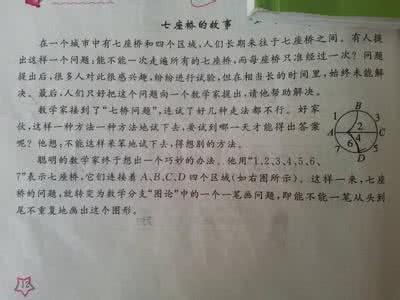 七座桥的故事
在一个城市中有七座桥和四个区域,人们长期来往于七座桥之间。有人提
出这样一个问题:能不能一次走遍所有的七座桥,而每座桥只准经过一次?问题
提出后,很多人对此很感兴趣,纷纷进行试验,但在相当长的时间里,始终未能解
决。最后,人们只好把这个问题向一个数学家提出,请他帮助解决。
数学家接到了“七桥问题”,连试了好几种走法都不行。好家
伙,这样一种方法一种方法地试下去,要试到哪一天才能得出答案
呢?他想:不能这样呆笨地试下去,得想别的方法。
聪明的数学家终于想出一个巧妙的办法。他用“1、2、3、4、5、6、
7”表示七座桥,它们连接着A、B、C、D四个区域(如右图所示)。这样一来,七座
桥的问题,就转变为数学分支“图论”中的一个一笔画问题,即能不能一笔从头到
尾不重复地画出这个图形。
B
1
3
2
A
C
4
6
7
5
D
12